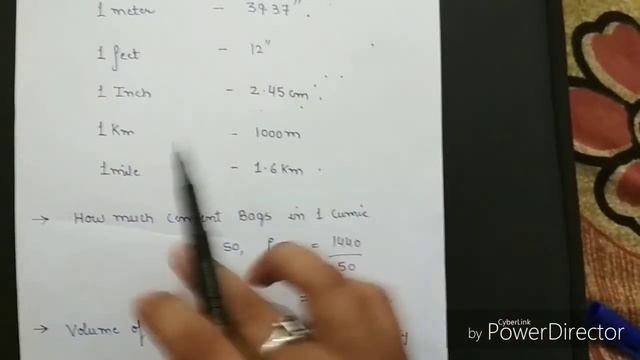 1 meter - 39.37"
1 feet - 12"
1 Inch - 2.45 cm
1 Km - 1000 m
1 mile - 1.6 Km
→ How much Bags in 1 Cumic
50, = 1440
50
=
→ Volume of
by CyberLink
PowerDirector